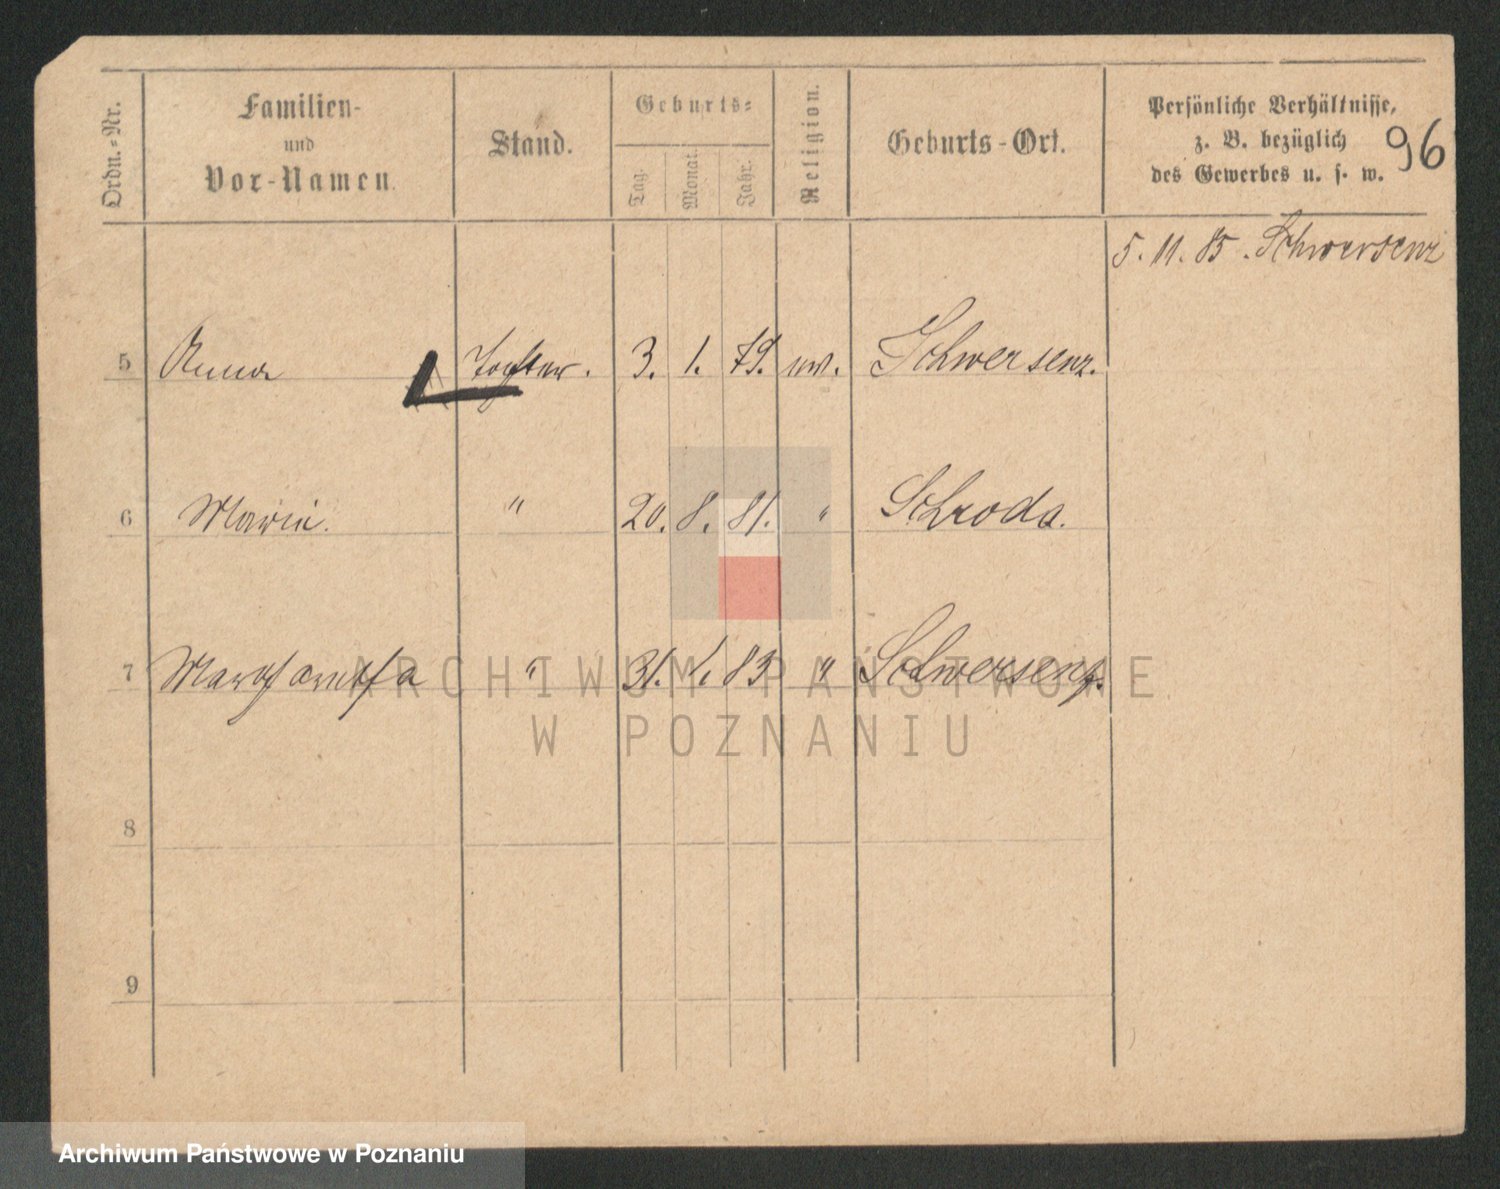 Ordn.-Nr.
Familien-
und
Vor-Namen.
Stand.
Geburts-
Tag.
Monat.
Jahr.
Religion.
Geburts-Ort.
Persönliche Verhältnisse,
z. B. bezüglich
des Gewerbes u. s. w.
96
5. 11. 85. Schwersenz
5 Anna Tochter. 3. 1. 79. ev. Schwersenz.
6 Marie. " 20. 8. 81. " Schroda.
7 Margarethe " 31. 1. 83 " Schwersenz.
8
9
ARCHIWUM PAŃSTWOWE
W POZNANIU
Archiwum Państwowe w Poznaniu